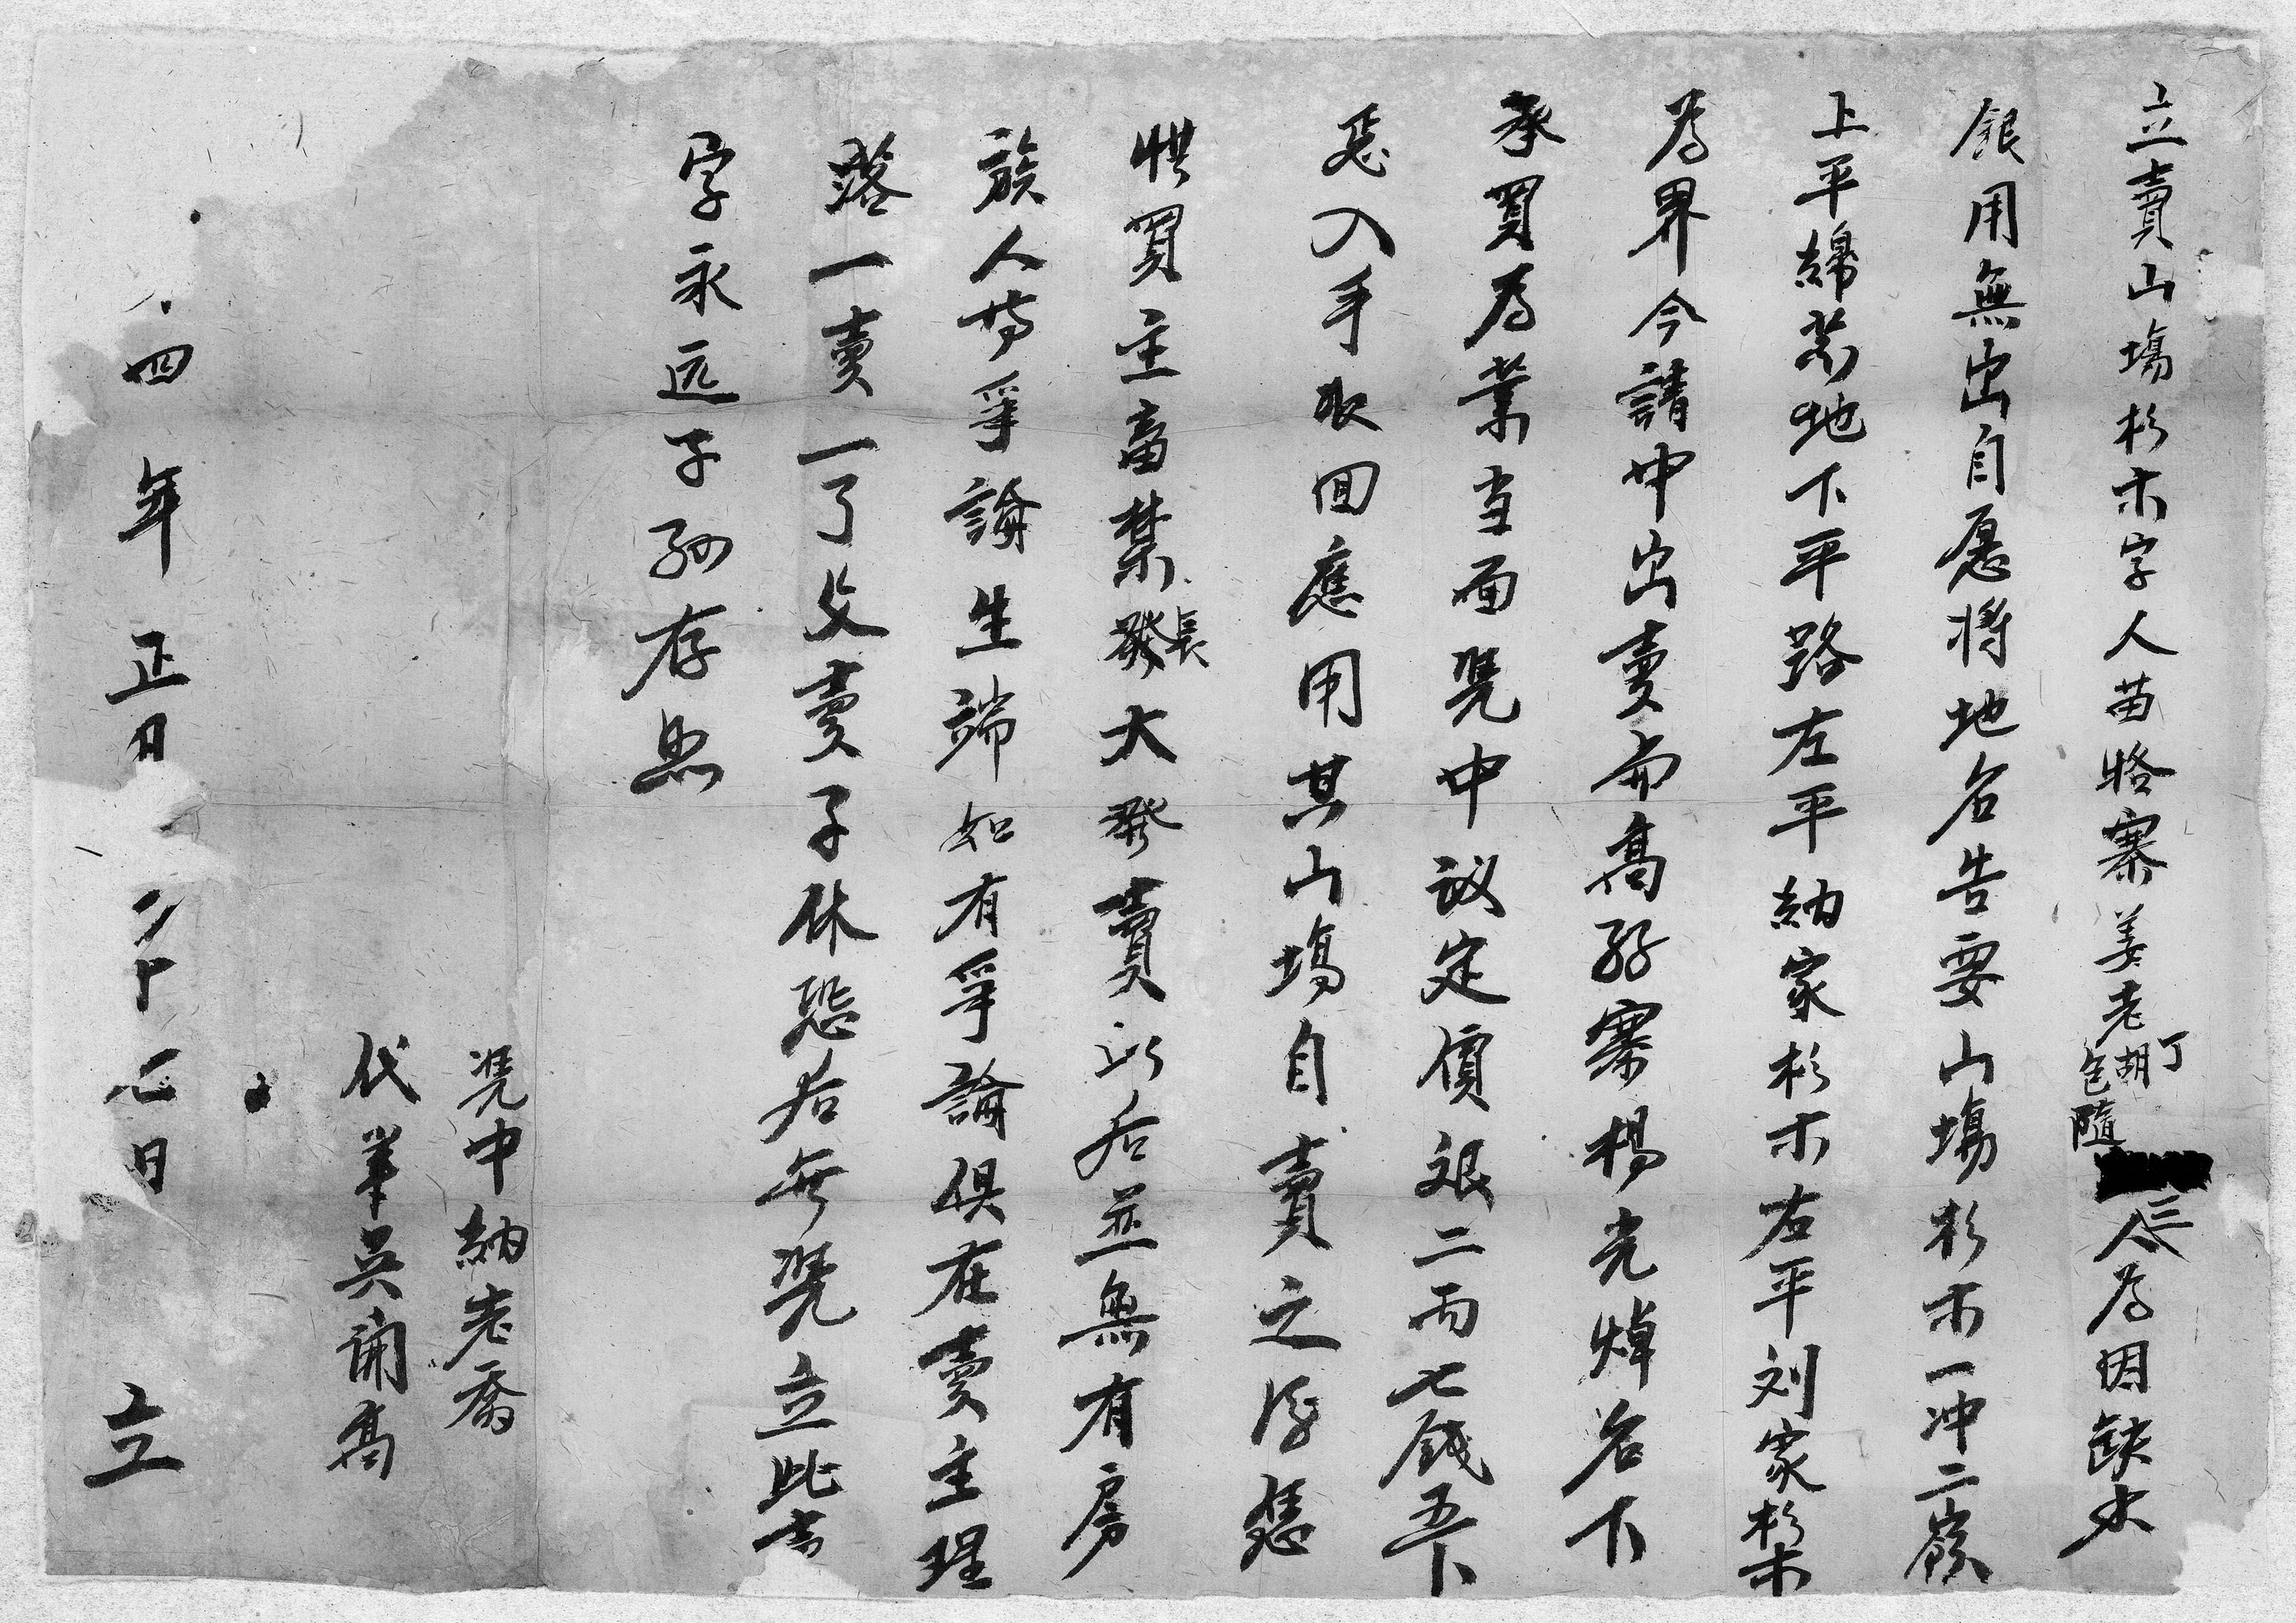 立賣山塲杉木字人苗䇶寨姜老丁胡包隨三人為因缺少
銀用無出自愿將地名告要山塲杉木一冲二嶺
上平綿荒地下平路左平納家杉木右平刘家杉木
為界今請中出賣而高孖寨楊光焯名下
承買為業当面凴中议定價艮二両七錢五卜
入手收回應用其山塲自賣之後
買主畜禁長發大發賣以后並無有房
族人等爭論生端如有爭論俱在賣主理
落一賣一了父賣子休恐后無凴立此
字永远子孫存照
凴中納老喬
代筆吳開高
四年正月二十七日立